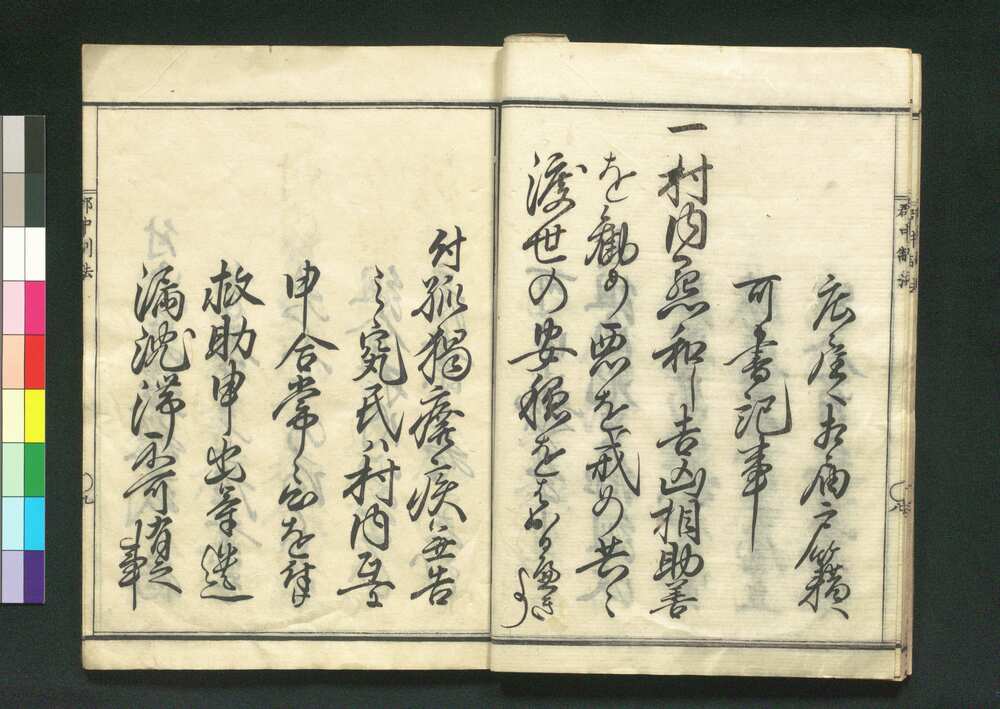 庄屋へ相届戸籍へ
可書記事
一村内和し吉凶相助善
を勧め悪を戒め共々
渡世の安穏をはかるへき事
付孤独癈疾無告
之窮民ハ村内互に
申合常々心を付
救助申出等遺
漏沈滞不可有之事
郡中制法
九